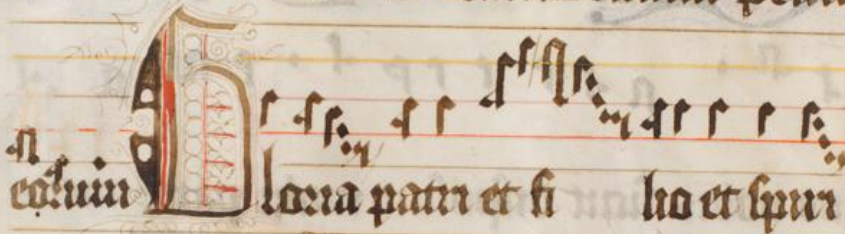 eorum Gloria patri et fi lio et spiri